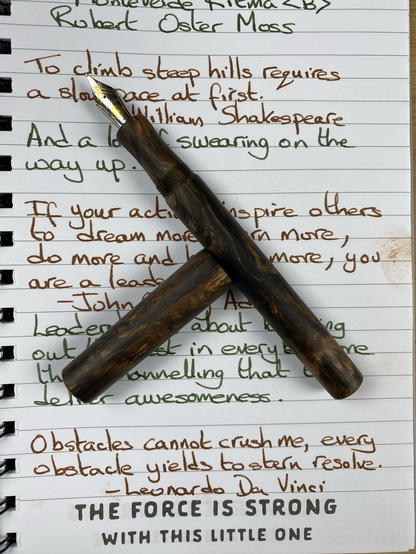 Monteverde Ritma <B>
Robert Oster Moss
To climb steep hills requires
a slow pace at first.
William Shakespeare
And a lo f swearing on the
way up.
If your acti inspire others
to dream more rn more,
do more and more, you
are a leade
-John A
Leader about ing
out st in every me
th nnelling that
awesomeness.
Obstacles cannot crush me, every
obstacle yields to stern resolve.
-Leonardo Da Vinci
THE FORCE IS STRONG
WITH THIS LITTLE ONE